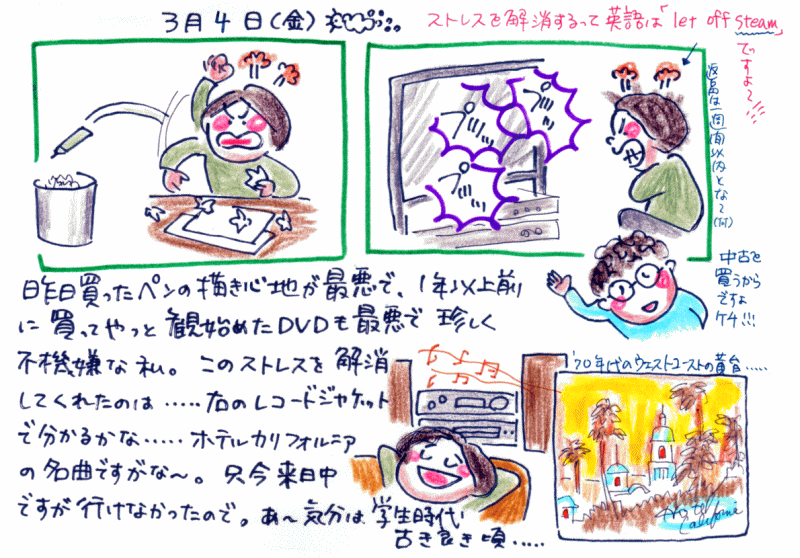 3月4日(金)
ストレスを解消するって英語は「let off steam」
ですよ〜!!!
返品は一週間以内となペ(何)
中古を
買うから
ですよ
ケチ!!!
昨日買ったペンの描き心地が最悪で、1年以上前
に買ってやっと観始めたDVDも最悪で 珍しく
不機嫌な私。このストレスを解消
してくれたのは‥‥‥右のレコードジャケット
で分かるかな‥‥‥ホテルカリフォルニア
の名曲ですがな〜。只今来日中
ですが行けなかったので。あ〜気分は学生時代
古き良き頃‥‥‥
'70年代のウェストコーストの黄昏‥‥‥
Hotel
California